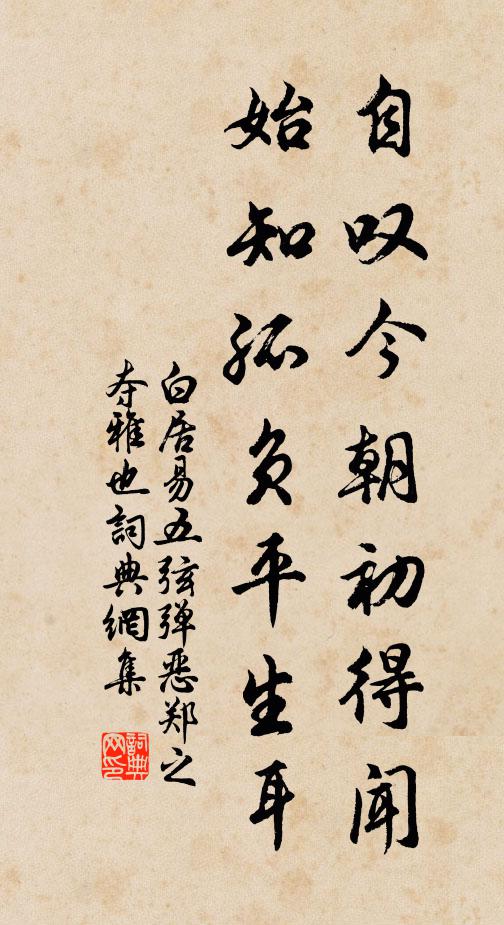 自叹今朝初得闻
始知孤负平生耳
白居易五弦弹恶郑之
夺雅也詞典網集
詞典
网印